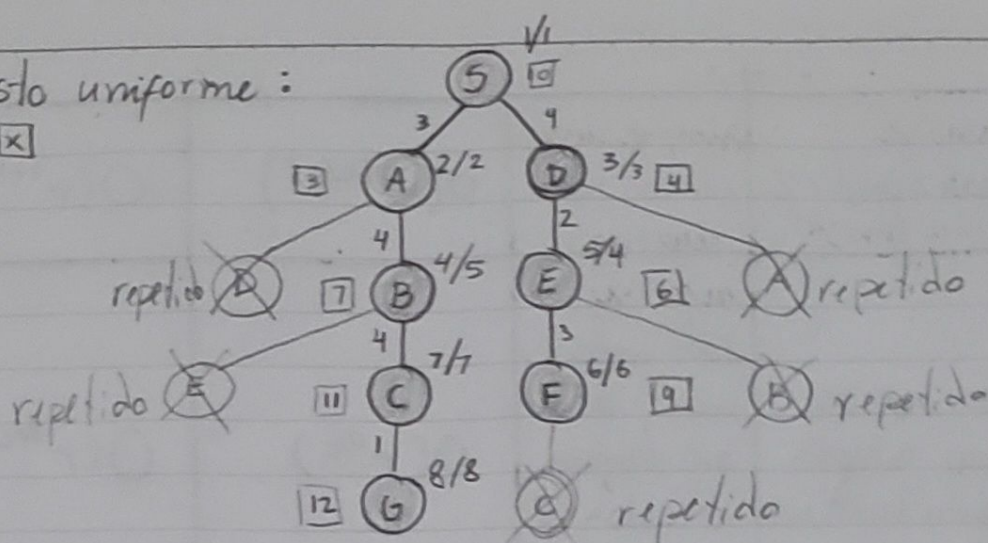 sto uniforme :
x
1/1
S 0
3 4
3 A 2/2 D 3/3 4
4 2
repetido D 7 B 4/5 E 5/4 6 A repetido
4 3
repetido E 11 C 7/7 F 6/6 9 B repetido
1
12 G 8/8 repetido